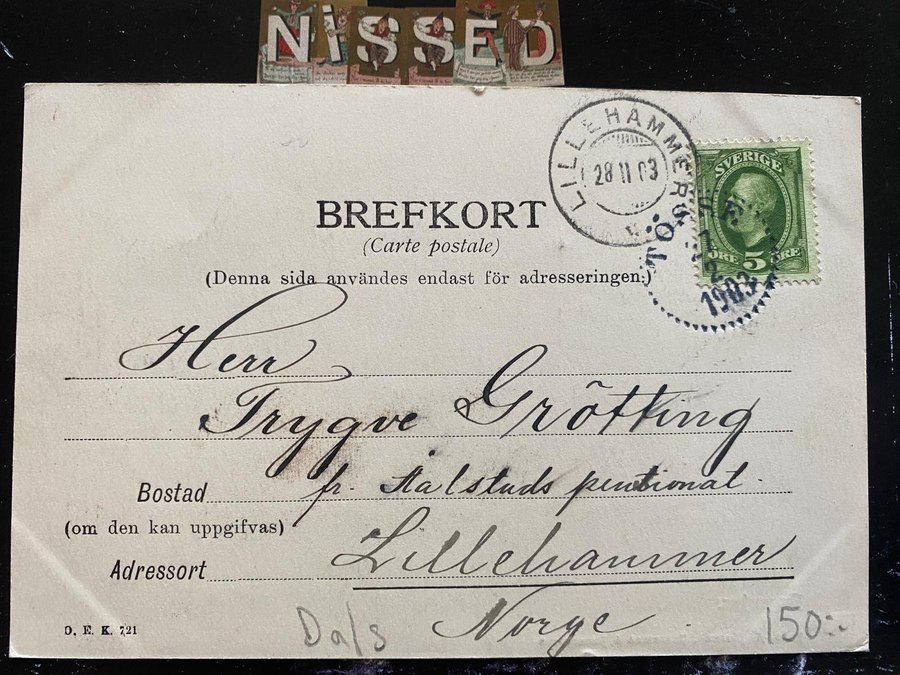 NiSSED
LILLEHAMMER
28 II 03
SVERIGE
ÖRE 5 ÖRE
TÖS
1903
BREFKORT
(Carte postale)
(Denna sida användes endast för adresseringen.)
Herr
Trygve Grötting
Bostad fr. Stalstads pentionat.
(om den kan uppgifvas)
Adressort Lillehammer
Norge
O. E. K. 721
Dals
150:-